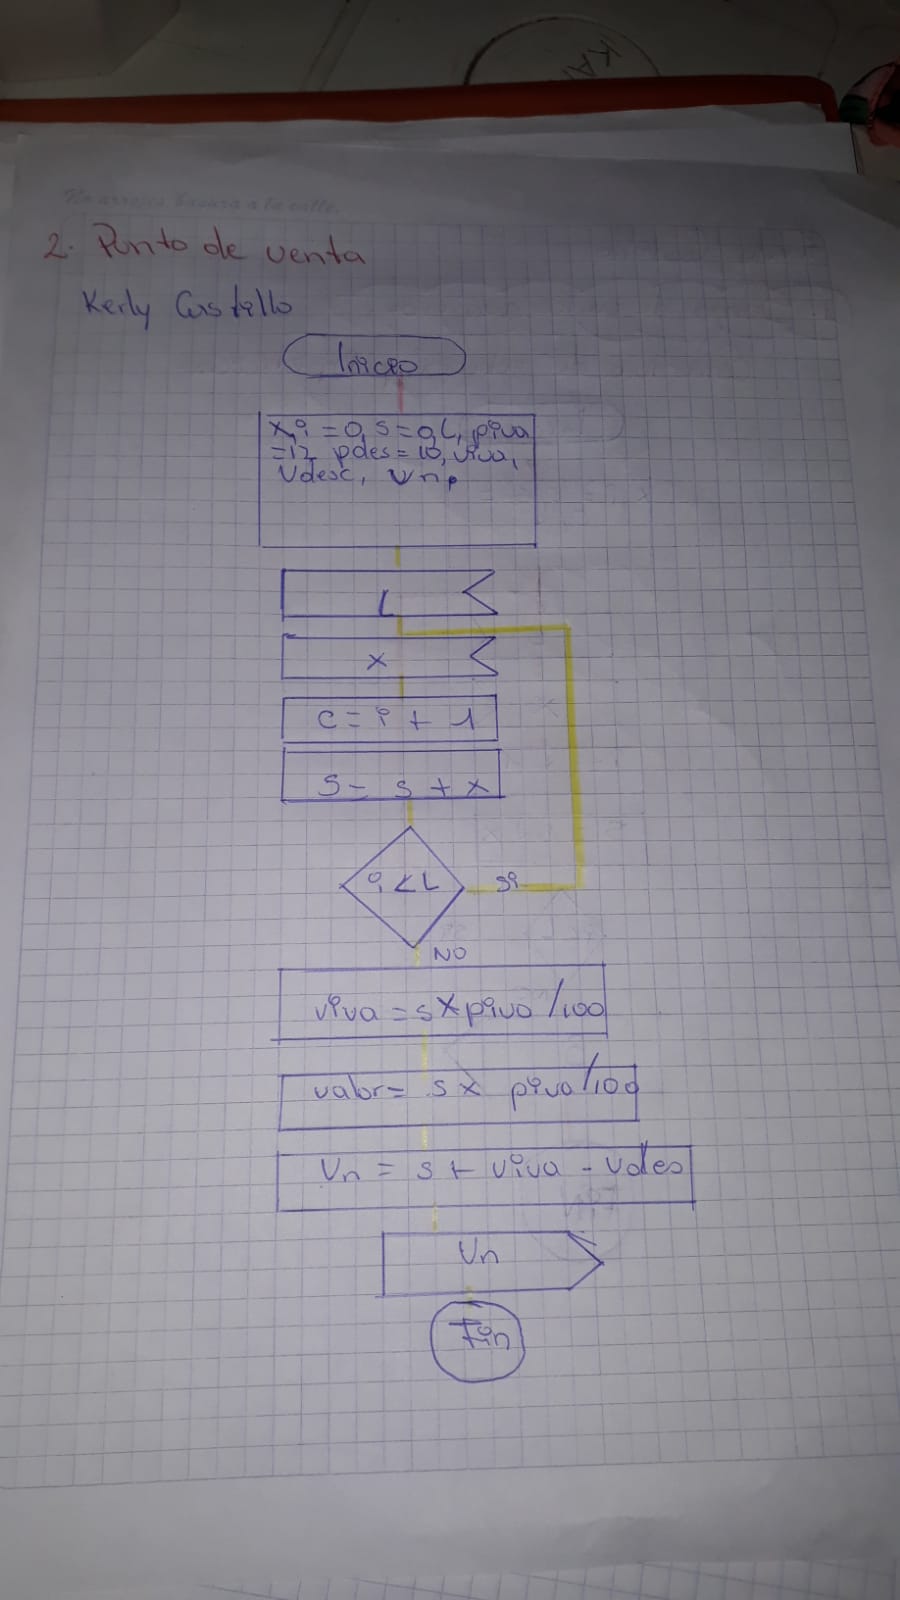 No arrojes basura a la calle.
2. Punto de venta
Kerly Castillo
Inicio
x, i = 0, s = 0, L, piva
= 12 pdes = 10, viva,
Vdesc, Vnp
L
x
c = i + 1
S = s + x
i < L
si
NO
viva = s x piva /100
valor = s x piva /100
Vn = s + viva - vdes
Vn
Fin